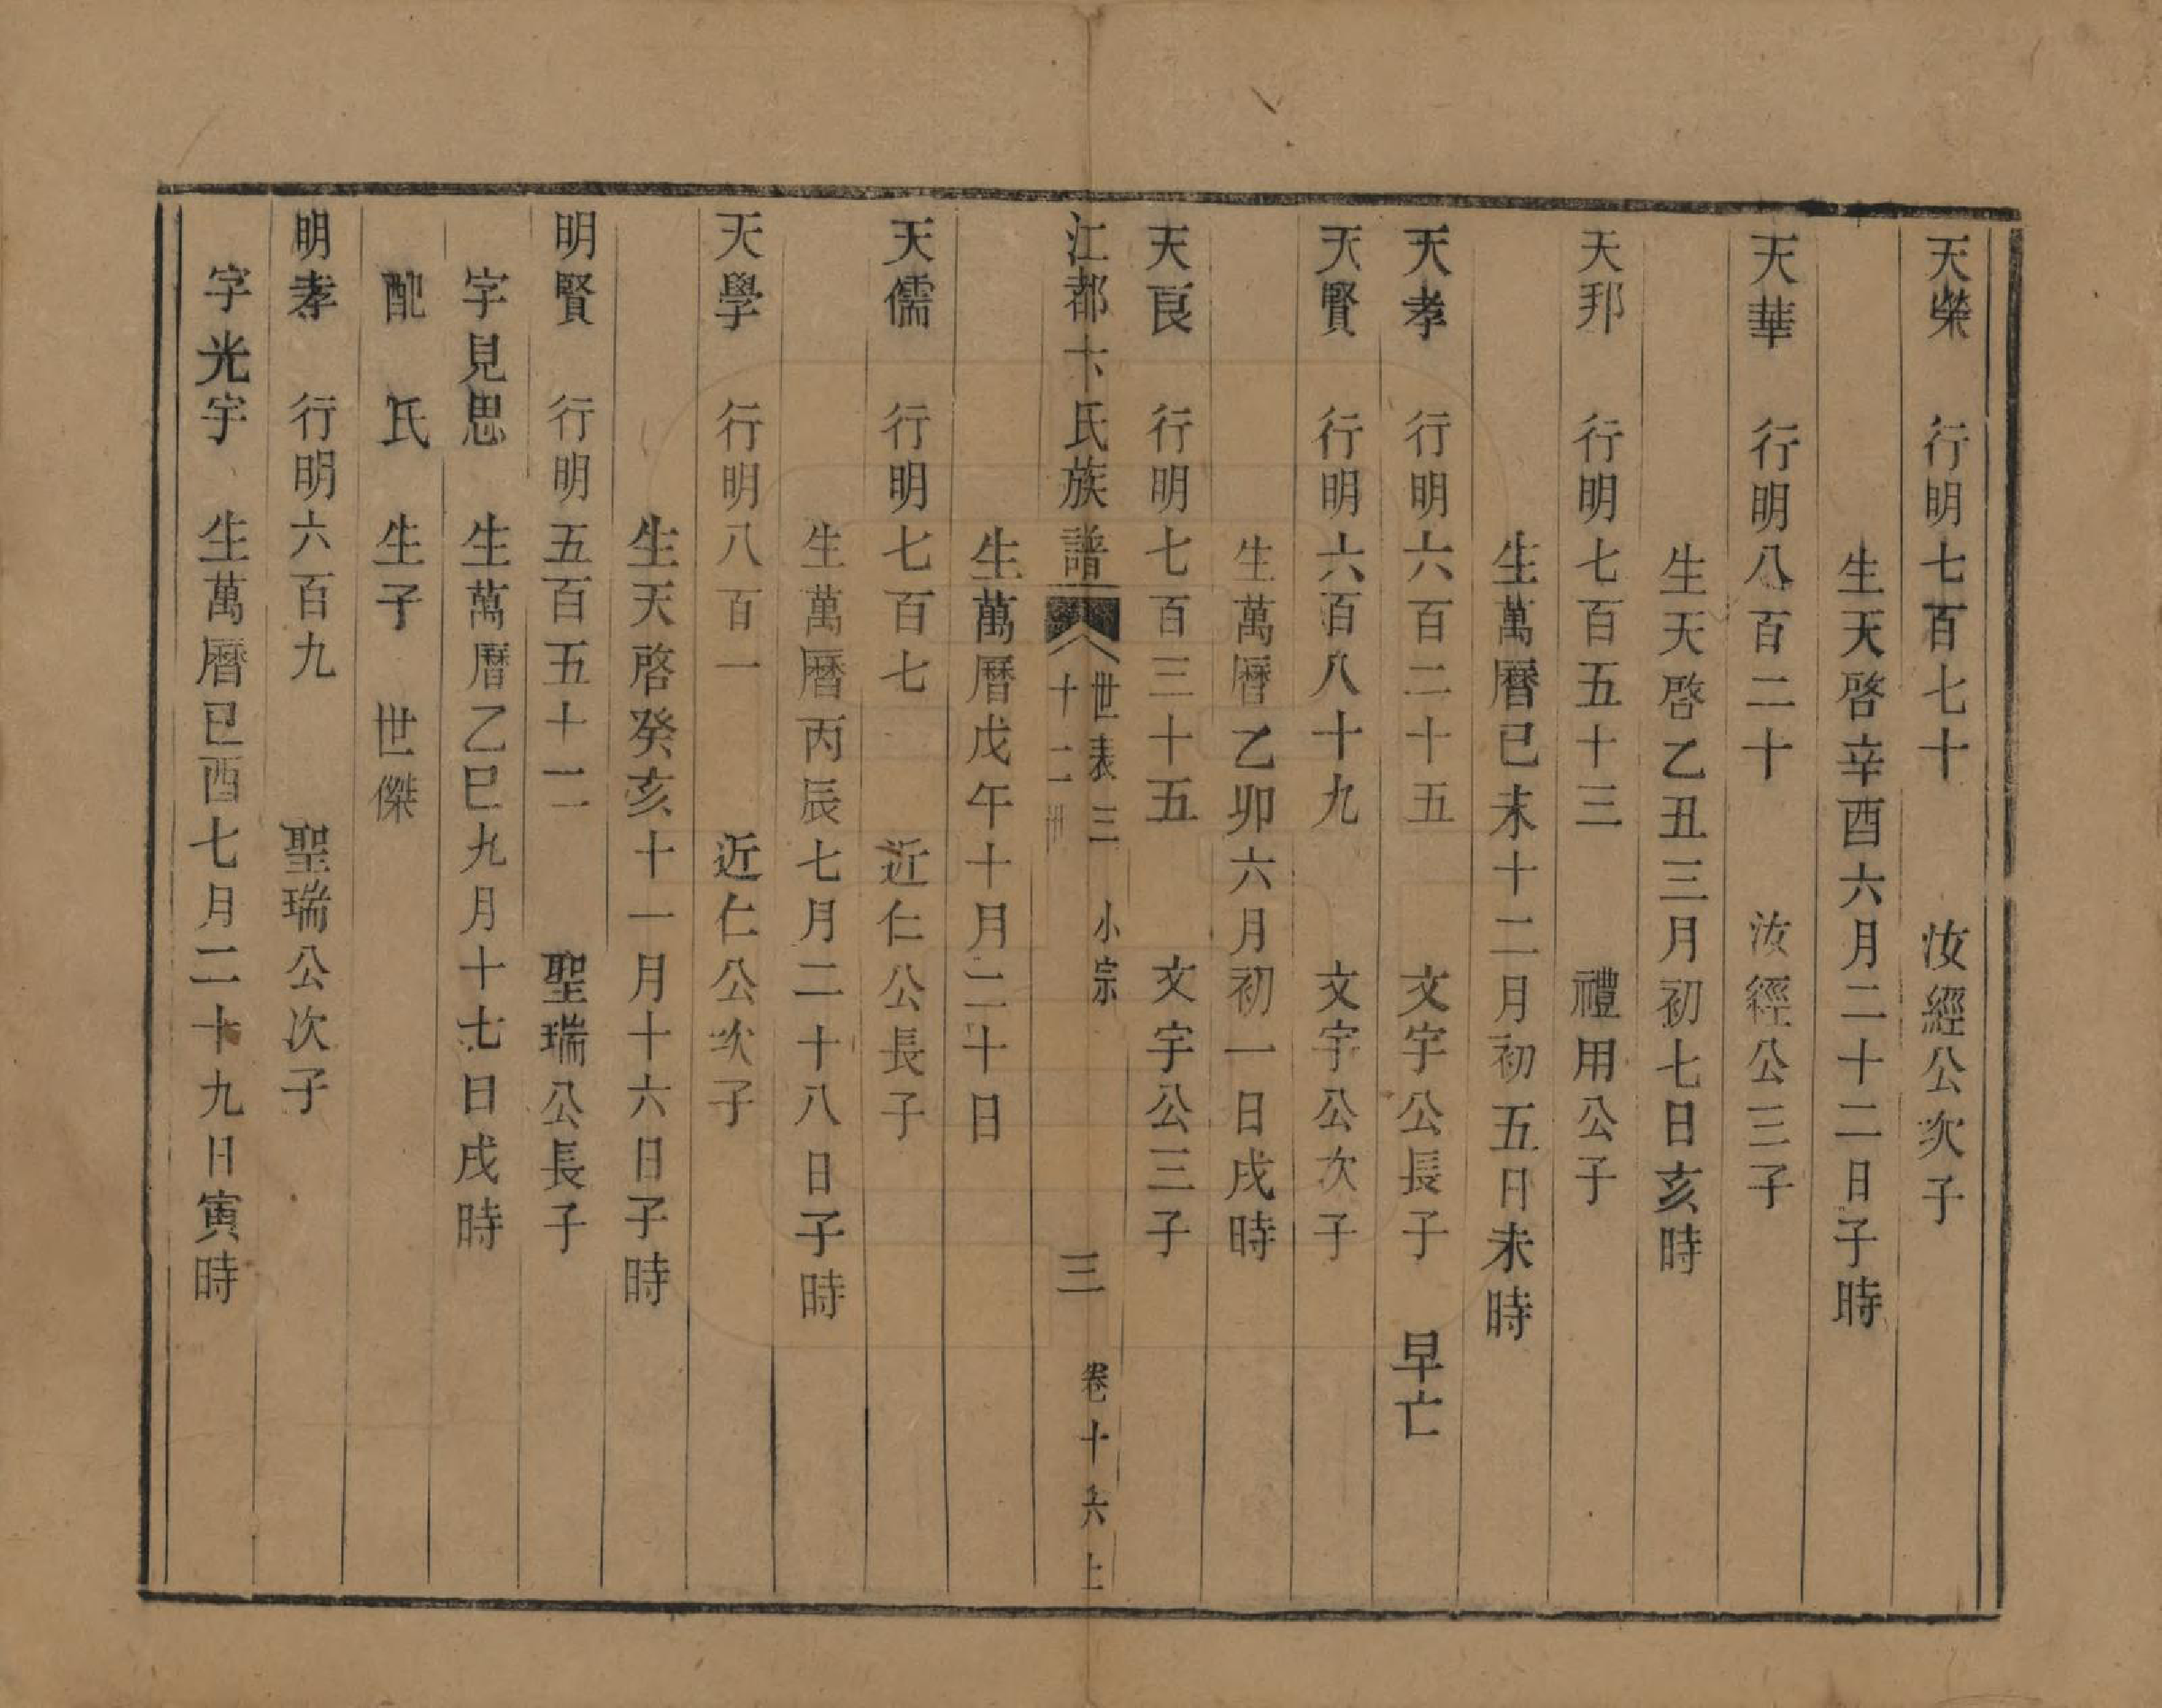 天榮　行明七百七十　汝經公次子
生天啓辛酉六月二十二日子時
天華　行明八百二十　汝經公三子
生天啓乙丑三月初七日亥時
天邦　行明七百五十三　禮用公子
生萬曆已未十二月初五日未時
天孝　行明六百二十五　文宇公長子　早亡
天賢　行明六百八十九　文宇公次子
生萬曆乙卯六月初一日戌時
天良　行明七百三十五　文宇公三子
江都卞氏族譜
世表三　小宗
十二世
三
卷十六上
生萬曆戊午十月二十日
天儒　行明七百七　近仁公長子
生萬曆丙辰七月二十八日子時
天學　行明八百一　近仁公次子
生天啓癸亥十一月十六日子時
明賢　行明五百五十二　聖瑞公長子
字見思　生萬曆乙巳九月十七日戌時
配　氏　生子　世傑
明孝　行明六百九　聖瑞公次子
字光宇　生萬曆已酉七月二十九日寅時